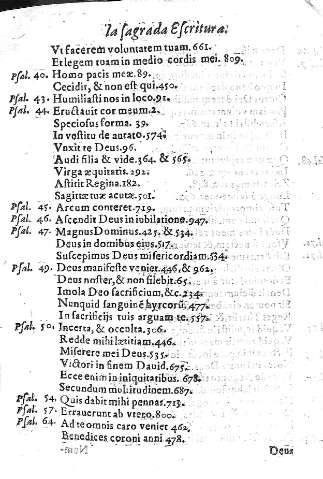 la sagrada Escritura.
Vt facerem voluntatem tuam. 661.
Et legem tuam in medio cordis mei. 809.
Psal. 40. Homo pacis meæ. 89.
Cecidit, & non est qui. 450.
Psal. 43. Humiliasti nos in loco. 91.
Psal. 44. Eructauit cor meum. 2.
Speciosus forma. 39.
In vestitu de aurato. 574.
Vnxit te Deus. 96.
Audi filia & vide. 364. & 565.
Virga æquitatis. 292.
Astitit Regina. 182.
Sagittæ tuæ acutæ. 501.
Psal. 45. Arcum conteret. 719.
Psal. 46. Ascendit Deus in iobilatione. 947.
Psal. 47. Magnus Dominus. 425. & 534.
Deus in domibus eius. 517.
Suscepimus Deus misericordiam. 534.
Psal. 49. Deus manifeste veniet. 446, & 962.
Deus noster, & non silebit. 65.
Imola Deo sacrificium, & c. 234.
Nunquid sanguinē hyrcorū. 477.
In sacrificijs tuis arguam te. 557.
Psal. 50. Incerta, & occolta. 306.
Redde mihi lætitiam. 446.
Miserere mei Deus. 535.
Victori in finem Dauid. 675.
Ecce enim in iniquitatibus. 678.
Secundum moltitudinem. 687.
Psal. 54. Quis dabit mihi pennas. 713.
Psal. 57. Errauerunt ab vtero. 800.
Psal. 64. Ad te omnis caro veniet 462.
Benedices coroni anni 478.
Deus